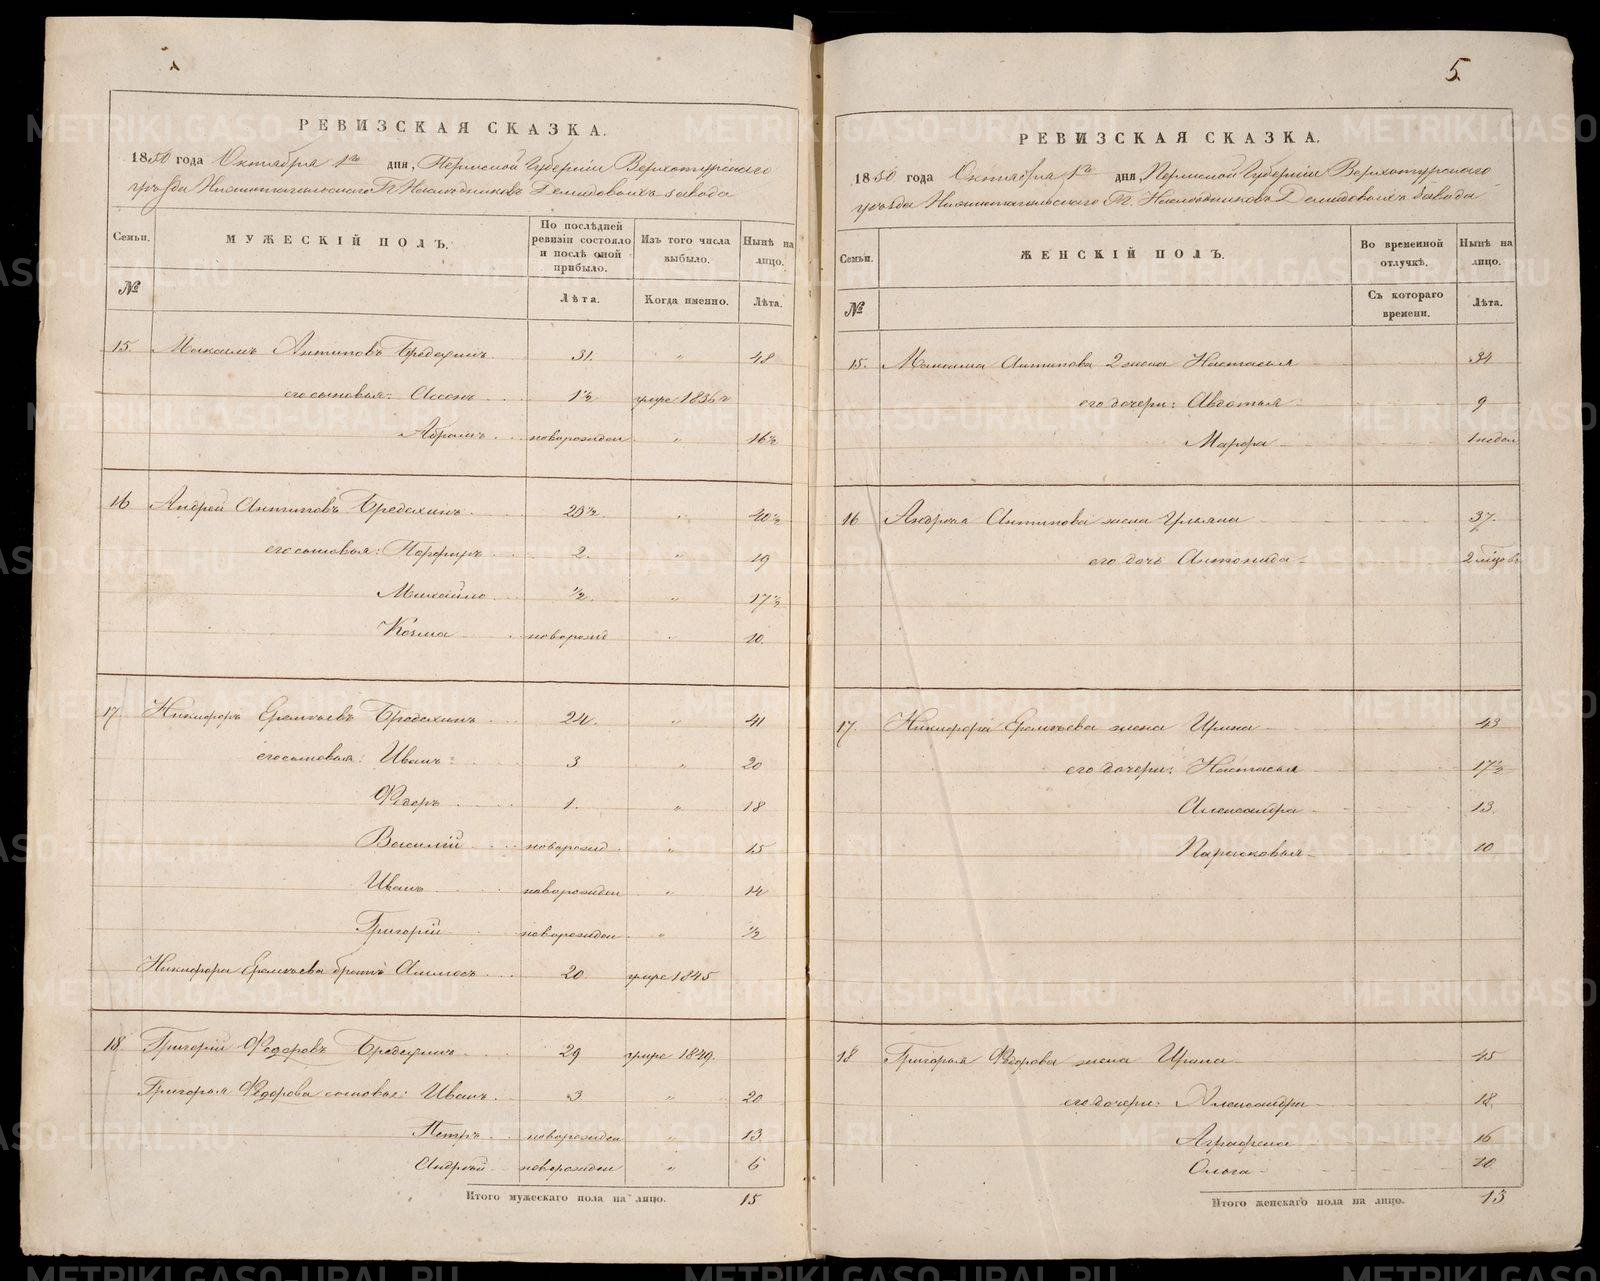 РЕВИЗСКАЯ СКАЗКА.
1850 года Октября 1го дня, Пермской Губернiи Верхотурскаго
уѣзда Нижнетагильскаго Г. Наслѣдниковъ Демидовыхъ завода
Семьи. МУЖЕСКIЙ ПОЛЪ. По послѣдней ревизiи состояло и послѣ оной прибыло. Изъ того числа выбыло. Нынѣ на лицо.
№ Лѣта. Когда именно. Лѣта.
15. Максимъ Антиповъ Бредихинъ 31. " 48
его сыновья: 1½ умре 1836
Абрамъ новорожден " 16½
16 Андрей Антиповъ Бредихинъ 23½ " 40½
его сыновья: Порфиръ 2. " 19
Михайло ½ " 17½
Козма новорожд " 10.
17. Никифоръ Еремѣевъ Бредихинъ 24. " 41
его сыновья: Иванъ 3 " 20
Ѳедоръ 1. " 18
Василiй новорожд " 15
Иванъ новорожден " 14
Григорiй новорожден " ½
Никифора Еремѣева братъ 20 умре 1845
18 Григорiй Ѳедоровъ Бредихинъ 29 умре 1849.
Григорья Ѳедорова сыновья: Иванъ 3 " 20
Петръ новорожден " 13
Андрей новорожден " 6
Итого мужескаго пола на лицо. 15
5
РЕВИЗСКАЯ СКАЗКА.
1850 года Октября 1го дня, Пермской Губернiи Верхотурскаго
уѣзда Нижнетагильскаго Г. Наслѣдниковъ Демидовыхъ Завода
Семьи. ЖЕНСКIЙ ПОЛЪ. Во временной отлучкѣ. Нынѣ на лицо.
№ Съ котораго времени. Лѣта.
15. Максима Антипова 2 жена Настасья 34
его дочери: Авдотья 9
Марфа 1 недел
16 Андрея Антипова жена Ульяна 37.
его дочь Антонида 2 мѣсцовъ
17. Никифора Еремѣева жена Ирина 43
его дочери: Настасья 17½
Александра 13.
Парасковья 10
18 Григорья Ѳедорова жена Ирина 45
его дочери: Александра 18
Аграфена 16
Ольга 10
Итого женскаго пола на лицо. 13
METRIKI.GASO-URAL.RU